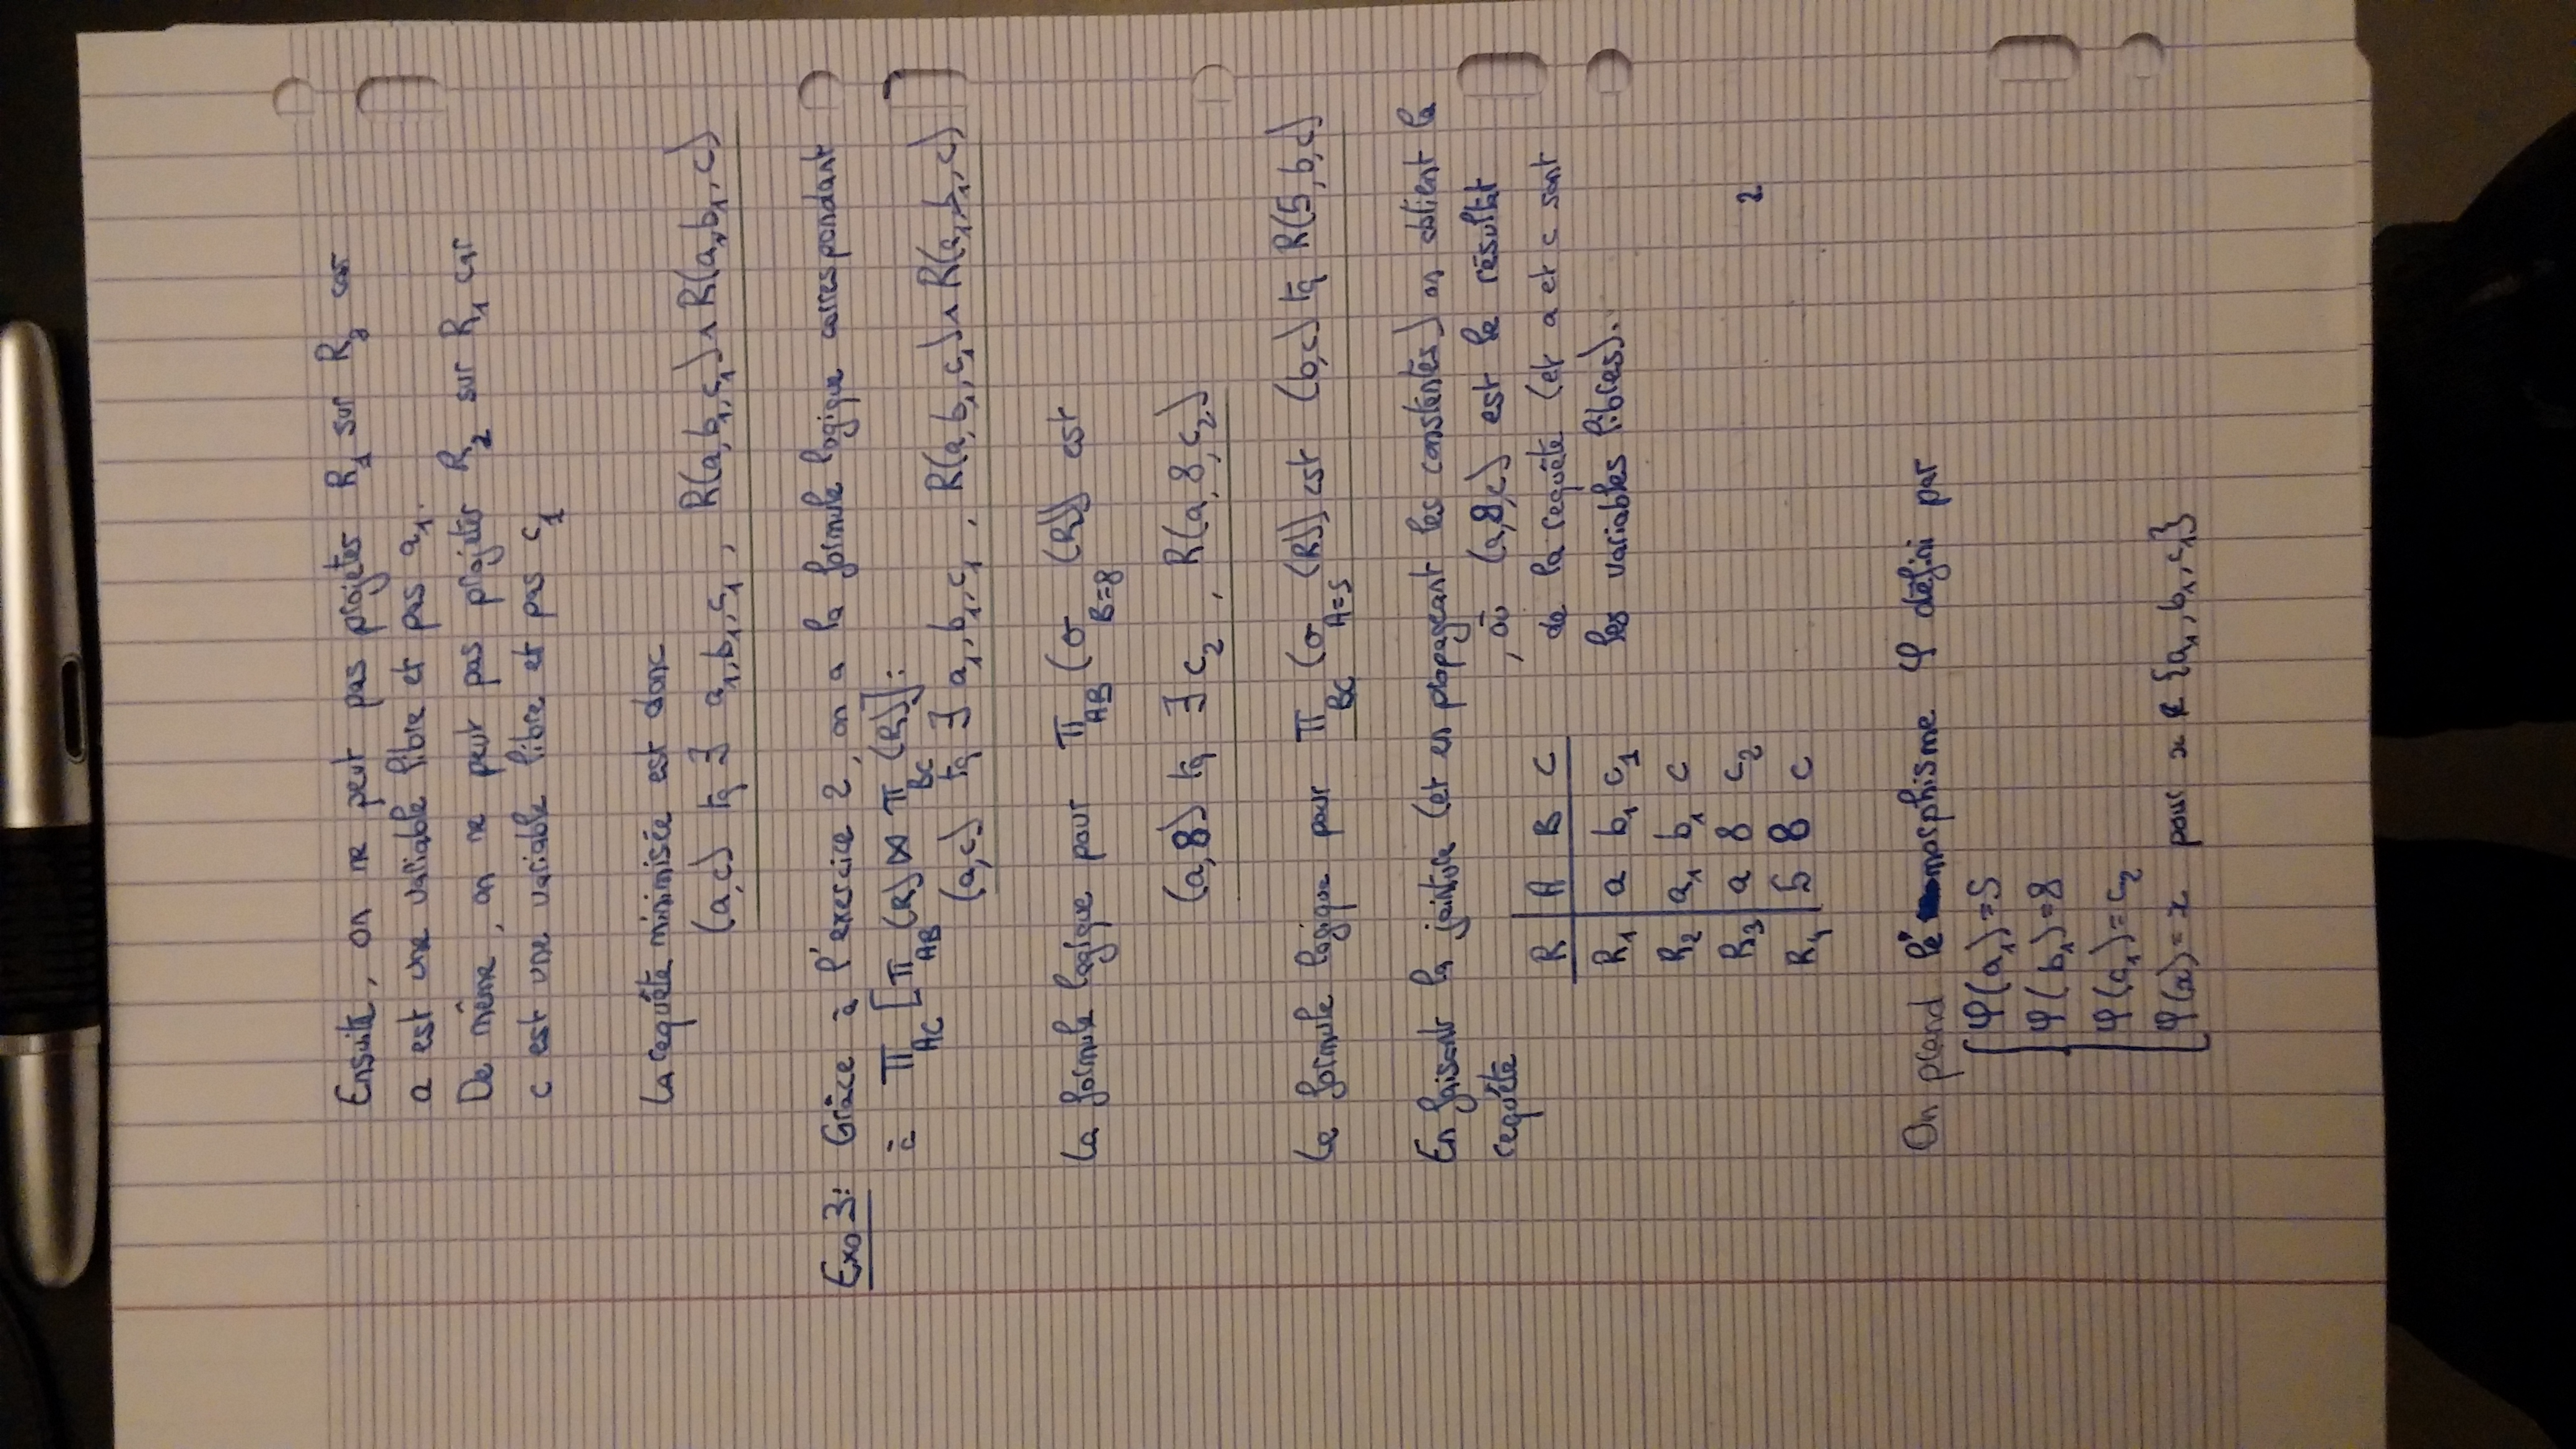 Ensuite, on ne peut pas projeter R₁ sur R₂ car
a est une variable libre et pas a₁.
De même, on ne peut pas projeter R₂ sur R₁ car
c est une variable libre et pas c₁
La requête minimisée est donc
(a,c) tq ∃ a₁,b₁,c₁ , R(a,b₁,c₁) ∧ R(a₁,b₁,c)
Exo 3: Grâce à l'exercice 2, on a la formule logique correspondant
à π_AC [π_AB (R) ⋈ π_BC (R)]:
(a,c) tq ∃ a₁,b₁,c₁ , R(a,b₁,c₁) ∧ R(a₁,b₁,c)
La formule logique pour π_AB (σ_B=8 (R)) est
(a,8) tq ∃ c₂ , R(a,8,c₂)
La formule logique pour π_BC (σ_A=5 (R)) est (b,c) tq R(5,b,c)
En faisant la jointure (et en propageant les constantes) on obtient la
requête , où (a,8,c) est le résultat
de la requête (et a et c sont
les variables libres).
R A B C
R₁ a b₁ c₁
R₂ a₁ b₁ c
R₃ a 8 c₂
R₄ 5 8 c
2
On prend le morphisme φ défini par
φ(a₁)=5
φ(b₁)=8
φ(c₁)=c₂
φ(x)=x pour x ∉ {a₁,b₁,c₁}